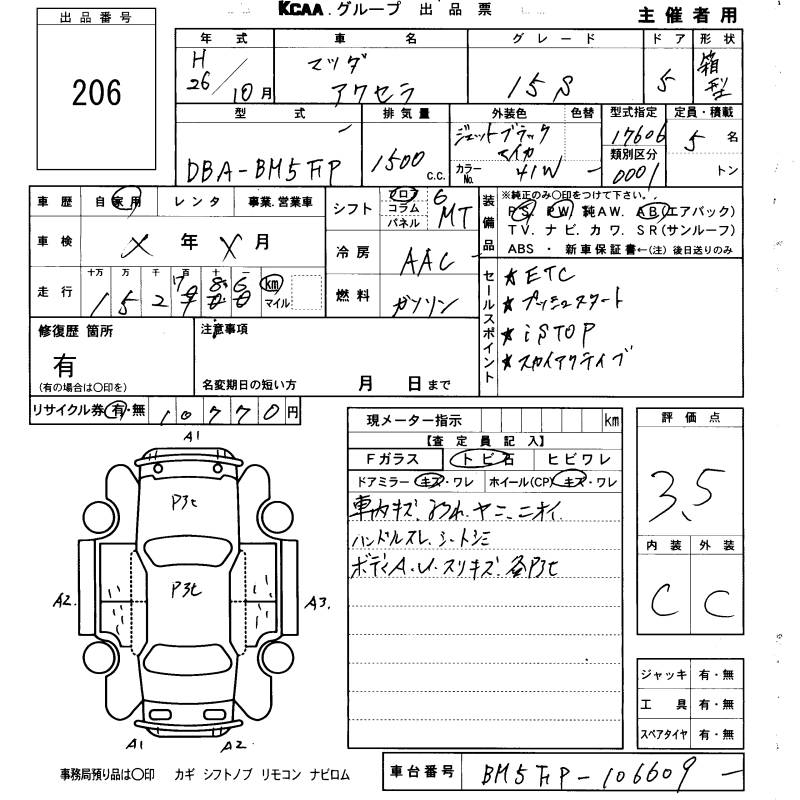 KCAA.グループ 出品票
主催者用
出品番号
206
年式 車名 グレード ドア 形状
H26/10月 マツダ アクセラ 15S 5 箱型
型式 排気量 外装色 色替 型式指定 定員・積載
DBA-BM5FP 1500 c.c. ジェットブラックマイカ 17606 5名
カラーNo. 41W 類別区分 0001 トン
車歴 自家用 レンタ 事業.営業車
車検 X年X月
走行 十万 万 千 百 十 一 km マイル
シフト フロア コラム パネル 6 MT
冷房 AAC
燃料 ガソリン
装備品 ※純正のみ〇印をつけて下さい。
PS. PW. 純AW. AB(エアバック)
TV. ナビ. カワ. SR(サンルーフ)
ABS ・ 新車保証書←(注) 後日送りのみ
セールスポイント
★ETC
★プッシュスタート
★iSTOP
★スカイアクティブ
修復歴 箇所
有
(有の場合は〇印を)
注意事項
名変期日の短い方 月 日まで
リサイクル券 有・無 10770円
現メーター指示 km
【査定員記入】
Fガラス トビ石 ヒビワレ
ドアミラー キズ・ワレ ホイール(CP) キズ・ワレ
車内キズ.ヨゴレ.ヤニ.ニオイ
ハンドルスレ.シートシミ
ボディA.U.スリキズ.各P3t
評価点
3.5
内装 外装
C C
A1
P3t
P3t
A2. A3.
A1 A2
ジャッキ 有・無
工具 有・無
スペアタイヤ 有・無
事務局預り品は〇印 カギ シフトノブ リモコン ナビロム
車台番号 BM5FP-106609